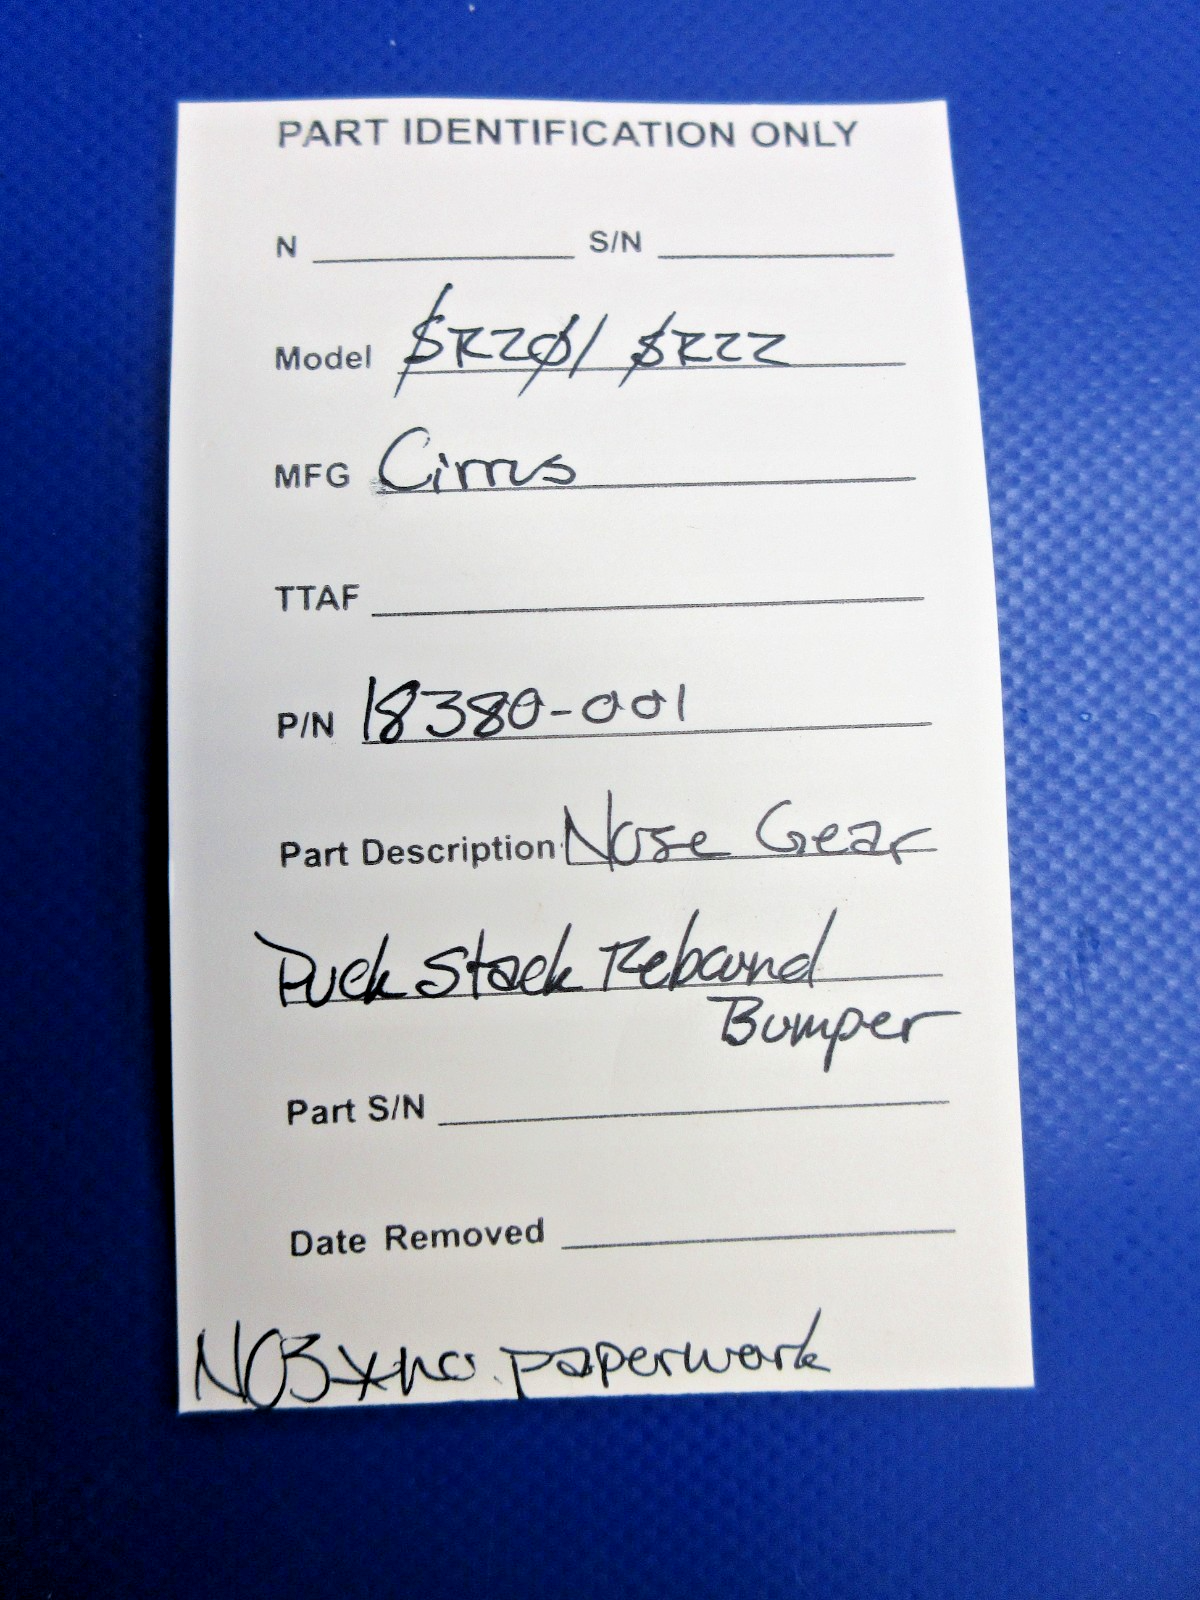 PART IDENTIFICATION ONLY
N ____ S/N ____
Model SR20/ SR22
MFG Cirrus
TTAF ____
P/N 18380-001
Part Description Nose Gear
Puck Stack Rebound
Bumper
Part S/N ____
Date Removed ____
NOS *no paperwork